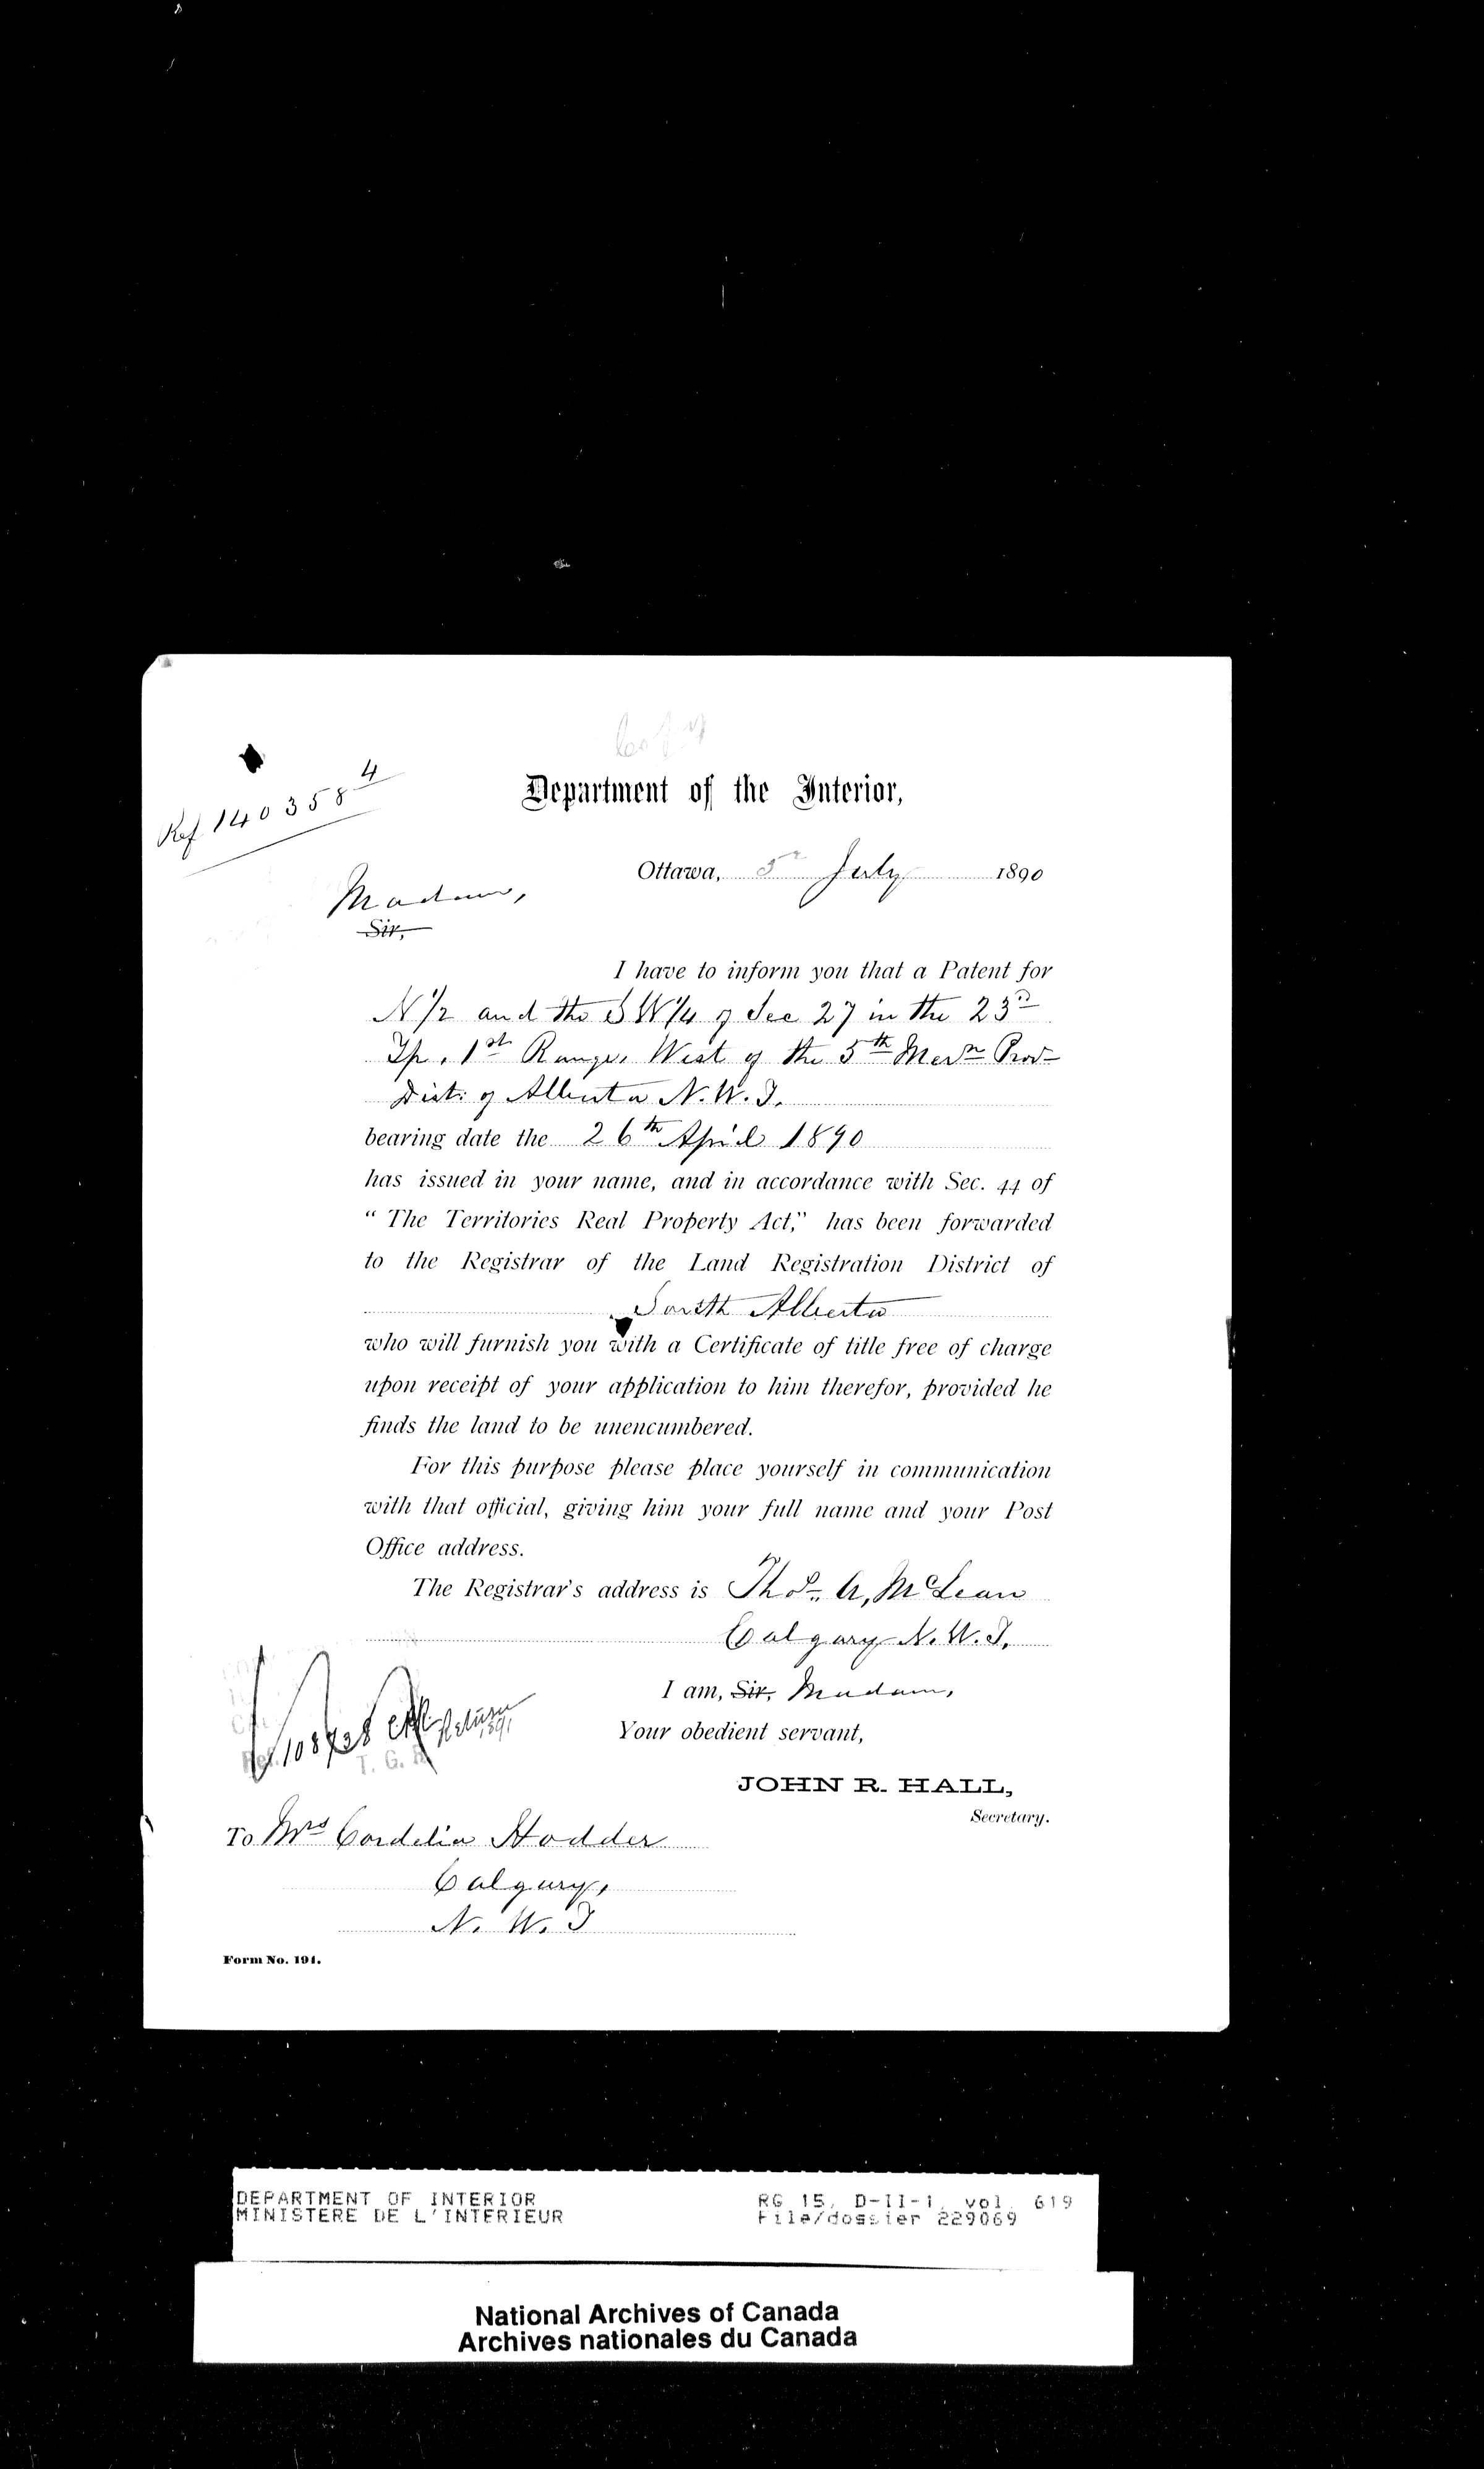 Copy
Ref 140358 4
Department of the Interior,
Ottawa, 5th July 1890
Madam,
Sir,
I have to inform you that a Patent for
N 1/2 and the S W 1/4 of Sec 27 in the 23rd
Tp. 1st Range, West of the 5th Mern Prov
Dist: of Alberta N.W.T.
bearing date the 26th April 1890
has issued in your name, and in accordance with Sec. 44 of
“ The Territories Real Property Act,” has been forwarded
to the Registrar of the Land Registration District of
South Alberta
who will furnish you with a Certificate of title free of charge
upon receipt of your application to him therefor, provided he
finds the land to be unencumbered.
For this purpose please place yourself in communication
with that official, giving him your full name and your Post
Office address.
The Registrar's address is Thos. A. McLean
Calgary N.W.T.
I am, Sir, Madam,
Your obedient servant,
JOHN R. HALL,
Secretary.
Ref. 108738 Return 1891
T. G. R.
To Mrs Cordelia Hodder
Calgary,
N. W. T
Form No. 191.
DEPARTMENT OF INTERIOR
MINISTERE DE L'INTERIEUR
RG 15, D-II-1, vol. 619
File/dossier 229069
National Archives of Canada
Archives nationales du Canada